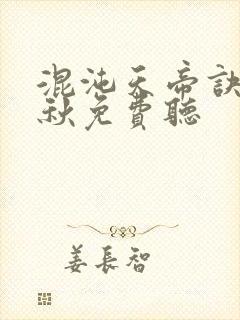 混沌天帝訣
秋免費聽
姜長智